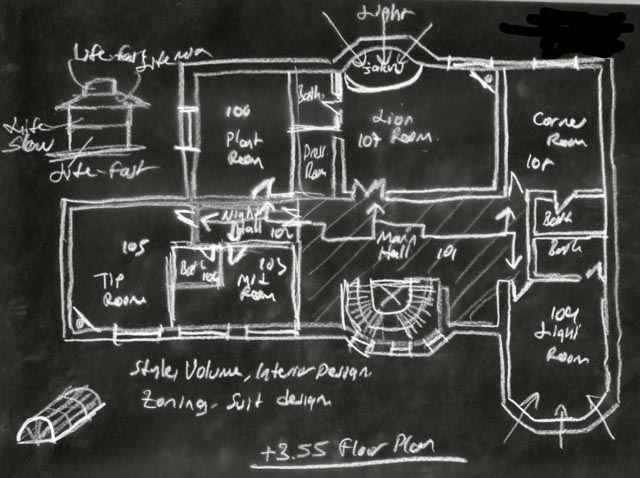 Light
Life-fast
Life
Slow
Life-fast
106
Plant
Room
Bath
Dress.
Room
Lion
107
Room
Corner
Room
Bath
Bath
Night
Hall
102
Main
Hall
101
105
TIP
Room
Bath
103
Room
104
Light
Room
Style, Volume, Interior Design
Zoning, Suit design
+3.55 Floor Plan